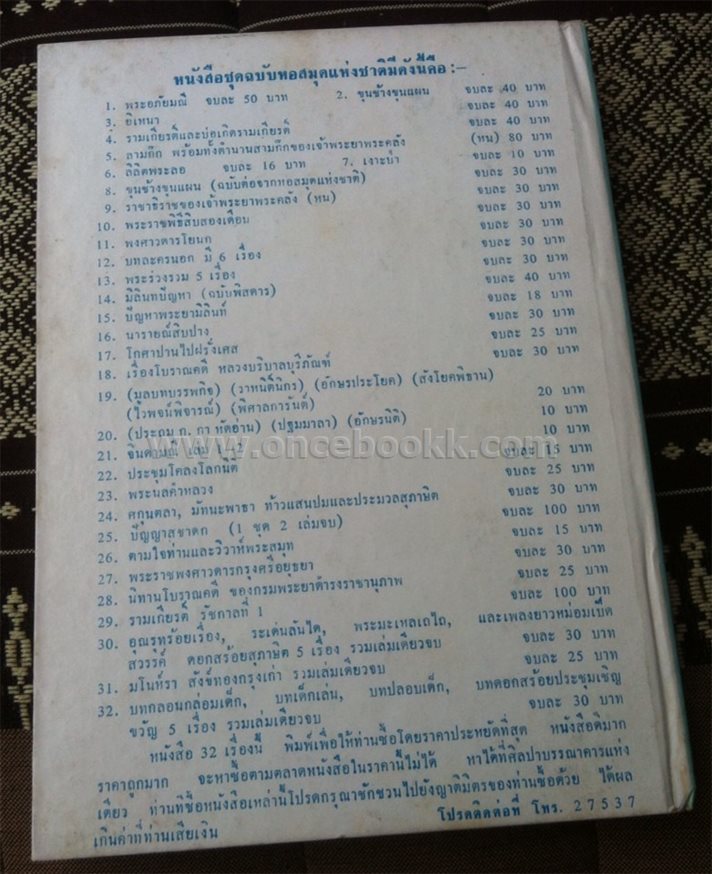 หนังสือชุดฉบับหอสมุดแห่งชาติมีดังนี้คือ :-
1. พระอภัยมณี จบละ 50 บาท 2. ขุนช้างขุนแผน จบละ 40 บาท
3. อิเหนา จบละ 40 บาท
4. รามเกียรติ์และบ่อเกิดรามเกียรติ์ จบละ 40 บาท
5. สามก๊ก พร้อมทั้งตำนานสามก๊กของเจ้าพระยาพระคลัง (หน) 80 บาท
6. ลิลิตพระลอ จบละ 16 บาท 7. เงาะป่า จบละ 10 บาท
8. ขุนช้างขุนแผน (ฉบับต่อจากหอสมุดแห่งชาติ) จบละ 30 บาท
9. ราชาธิราชของเจ้าพระยาพระคลัง (หน) จบละ 30 บาท
10. พระราชพิธีสิบสองเดือน จบละ 30 บาท
11. พงศาวดารโยนก จบละ 30 บาท
12. บทละครนอก มี 6 เรื่อง จบละ 30 บาท
13. พระร่วงรวม 5 เรื่อง จบละ 30 บาท
14. มิลินทปัญหา (ฉบับพิสดาร) จบละ 40 บาท
15. ปัญหาพระยามิลินท์ จบละ 18 บาท
16. นารายณ์สิบปาง จบละ 30 บาท
17. โกศาปานไปฝรั่งเศส จบละ 25 บาท
18. เรื่องโบราณคดี หลวงบริบาลบุรีภัณฑ์ จบละ 30 บาท
19. (มูลบทบรรพกิจ) (วาหนิติ์นิกร) (อักษรประโยค) (สังโยคพิธาน)
(ไวพจน์พิจารณ์) (พิศาลการันต์) 20 บาท
20. (ประถม ก. กา หัดอ่าน) (ปฐมมาลา) (อักษรนิติ) 10 บาท
21. จินดามณี เล่ม 1-2 10 บาท
22. ประชุมโคลงโลกนิติ จบละ 15 บาท
23. พระนลคำหลวง จบละ 25 บาท
24. ศกุนตลา, มัทนะพาธา ท้าวแสนปมและประมวลสุภาษิต จบละ 30 บาท
25. ปัญญาสชาดก (1 ชุด 2 เล่มจบ) จบละ 100 บาท
26. ตามใจท่านและวิวาห์พระสมุท จบละ 15 บาท
27. พระราชพงศาวดารกรุงศรีอยุธยา จบละ 30 บาท
28. นิทานโบราณคดี ของกรมพระยาดำรงราชานุภาพ จบละ 25 บาท
29. รามเกียรติ์ รัชกาลที่ 1 จบละ 100 บาท
30. อุณรุทร้อยเรื่อง, ระเด่นลันได, พระมะเหลเถไถ, และเพลงยาวหม่อมเป็ด
สวรรค์ ดอกสร้อยสุภาษิต 5 เรื่อง รวมเล่มเดียวจบ จบละ 30 บาท
31. มโนห์รา สังข์ทองกรุงเก่า รวมเล่มเดียวจบ จบละ 25 บาท
32. บทกลอนกล่อมเด็ก, บทเด็กเล่น, บทปลอบเด็ก, บทดอกสร้อยประชุมเชิญ
ขวัญ 5 เรื่อง รวมเล่มเดียวจบ จบละ 30 บาท
หนังสือ 32 เรื่องนี้ พิมพ์เพื่อให้ท่านซื้อโดยราคาประหยัดที่สุด หนังสือดีมาก
ราคาถูกมาก จะหาซื้อตามตลาดหนังสือในราคานี้ไม่ได้ หาได้ที่ศิลปาบรรณาคารแห่ง
เดียว ท่านที่ซื้อหนังสือเหล่านี้โปรดกรุณาชักชวนไปยังญาติมิตรของท่านซื้อด้วย ได้ผล
เกินค่าที่ท่านเสียเงิน โปรดติดต่อที่ โทร. 27537
www.oncebookk.com